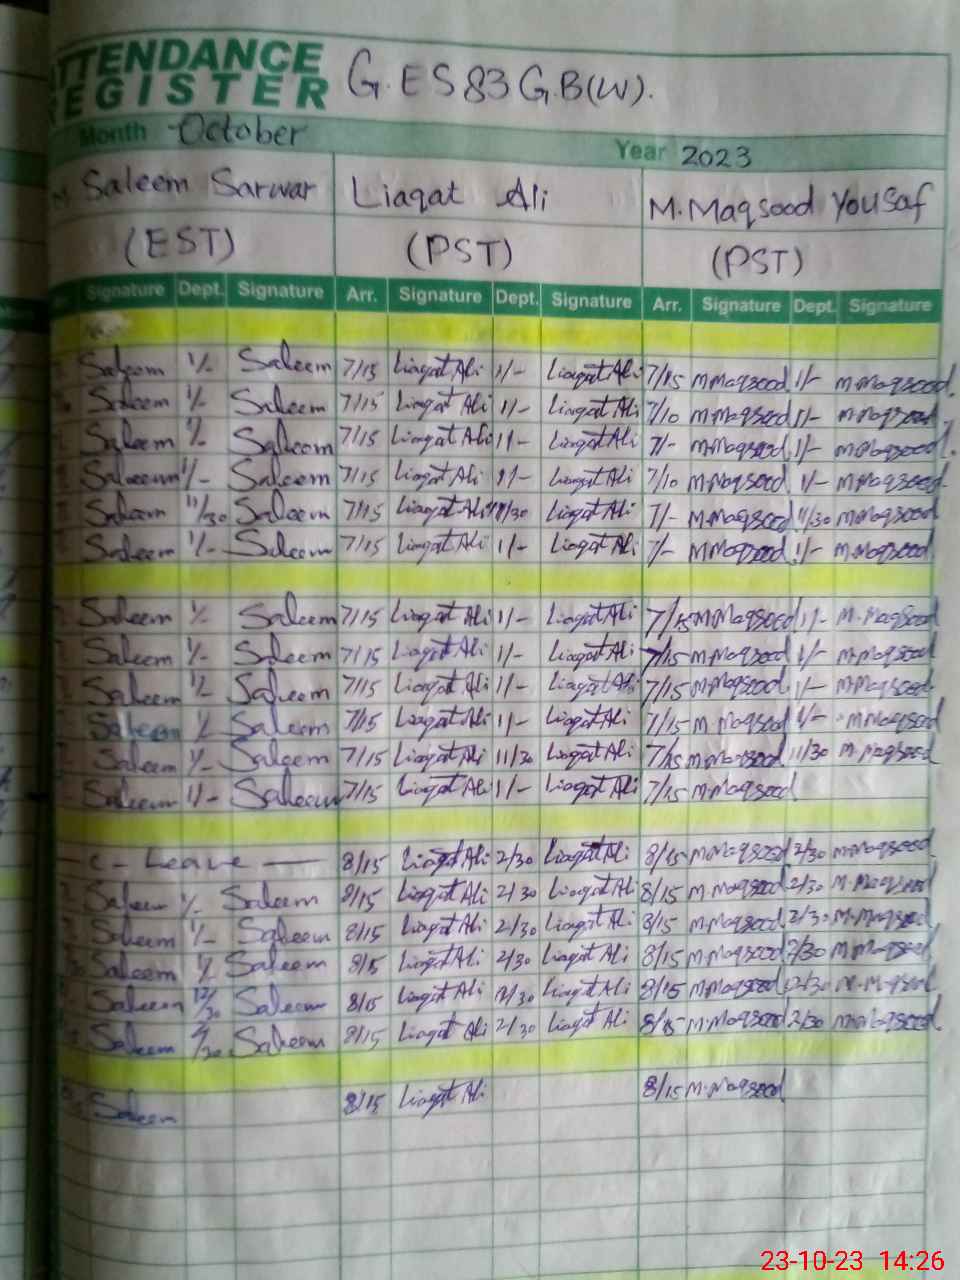 ATTENDANCE
REGISTER G.ES 83 G.B(W).
Month October Year 2023
M Saleem Sarwar Liaqat Ali M.Maqsood Yousaf
(EST) (PST) (PST)
Signature Dept. Signature Arr. Signature Dept. Signature Arr. Signature Dept. Signature
Saleem 1/- Saleem 7/15 Liaqat Ali 1/- Liaqat Ali 7/15 M.Maqsood 1/- M.Maqsood
Saleem 1/- Saleem 7/15 Liaqat Ali 1/- Liaqat Ali 7/10 M.Maqsood 1/- M.Maqsood
Saleem 1/- Saleem 7/15 Liaqat Ali 1/- Liaqat Ali 7/- M.Maqsood 1/- M.Maqsood
Saleem 1/- Saleem 7/15 Liaqat Ali 1/- Liaqat Ali 7/10 M.Maqsood 1/- M.Maqsood
Saleem 11/30 Saleem 7/15 Liaqat Ali 11/30 Liaqat Ali 7/- M.Maqsood 11/30 M.Maqsood
Saleem 1/- Saleem 7/15 Liaqat Ali 1/- Liaqat Ali 7/- M.Maqsood 1/- M.Maqsood
Saleem 1/- Saleem 7/15 Liaqat Ali 1/- Liaqat Ali 7/15 M.Maqsood 1/- M.Maqsood
Saleem 1/- Saleem 7/15 Liaqat Ali 1/- Liaqat Ali 7/15 M.Maqsood 1/- M.Maqsood
Saleem 1/- Saleem 7/15 Liaqat Ali 1/- Liaqat Ali 7/15 M.Maqsood 1/- M.Maqsood
Saleem 1/- Saleem 7/15 Liaqat Ali 1/- Liaqat Ali 7/15 M.Maqsood 1/- M.Maqsood
Saleem 1/- Saleem 7/15 Liaqat Ali 11/30 Liaqat Ali 7/15 M.Maqsood 11/30 M.Maqsood
Saleem 1/- Saleem 7/15 Liaqat Ali 1/- Liaqat Ali 7/15 M.Maqsood
— C - Leave — 8/15 Liaqat Ali 2/30 Liaqat Ali 8/15 M.Maqsood 2/30 M.Maqsood
Saleem 1/- Saleem 8/15 Liaqat Ali 2/30 Liaqat Ali 8/15 M.Maqsood 2/30 M.Maqsood
Saleem 1/- Saleem 8/15 Liaqat Ali 2/30 Liaqat Ali 8/15 M.Maqsood 2/30 M.Maqsood
Saleem 1/- Saleem 8/15 Liaqat Ali 2/30 Liaqat Ali 8/15 M.Maqsood 2/30 M.Maqsood
Saleem 12/30 Saleem 8/15 Liaqat Ali 12/30 Liaqat Ali 8/15 M.Maqsood 12/30 M.Maqsood
Saleem 2/30 Saleem 8/15 Liaqat Ali 2/30 Liaqat Ali 8/15 M.Maqsood 2/30 M.Maqsood
Saleem 8/15 Liaqat Ali 8/15 M.Maqsood
23-10-23 14:26